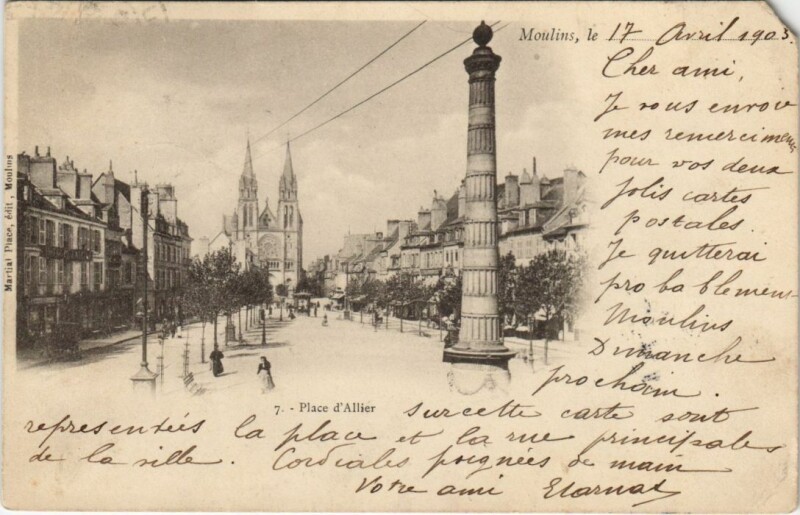 Moulins, le 17 Avril 1903.
Cher ami,
Je vous envoie
mes remerciments
pour vos deux
jolis cartes
postales.
Je quitterai
probablement
Moulins
Dimanche
prochain.
Martial Place, édit, Moulins
7. - Place d'Allier
sur cette carte sont
representées la place et la rue principales
de la ville. Cordiales poignées de main
Votre ami